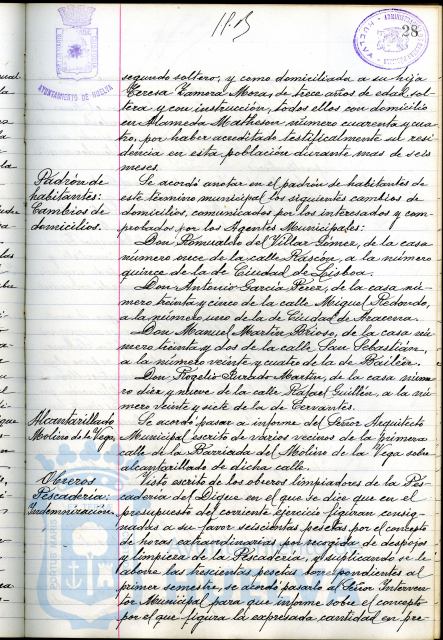 1915
28
AYUNTAMIENTO DE HUELVA
segundo soltero; y como domiciliada a su hija
Teresa Zamora Mora, de trece años de edad, sol-
tera y con instrucción, todos ellos con domicilio
en Alameda Matheson número cuarenta y cua-
tro, por haber acreditado testificalmente su resi-
dencia en esta población durante mas de seis
meses.
Padrón de
habitantes:
Cambios de
domicilios.
Se acordó anotar en el padrón de habitantes de
este término municipal los siguientes cambios de
domicilios, comunicados por los interesados y com-
probados por los Agentes Municipales:
Don Romualdo del Villar Gómez, de la casa
número once de la calle Rascón, a la número
quince de la de Ciudad de Lisboa.
Don Antonio García Pérez, de la casa nú-
mero treinta y cinco de la calle Miguel Redondo,
a la número uno de la de Ciudad de Aracena.
Don Manuel Martín Brioso, de la casa nú-
mero treinta y dos de la calle San Sebastián,
a la número veinte y cuatro de la de Bailén.
Don Rogelio Furtado Martín, de la casa núme-
ro diez y nueve de la calle Rafael Guillén, a la nú-
mero veinte y siete de la de Cervantes.
Alcantarillado
Molino de la Vega
Se acordó pasar a informe del Señor Arquitecto
Municipal escrito de varios vecinos de la primera
calle de la Barriada del Molino de la Vega sobre
alcantarillado de dicha calle.
Obreros
Pescadería:
Indemnización.
Visto escrito de los obreros limpiadores de la Pes-
cadería del Dique en el que se dice que en el
presupuesto del corriente ejercicio figuran consig-
nadas a su favor seiscientas pesetas por el concepto
de horas extraordinarias por recogida de despojos
y limpieza de la Pescadería, y suplicando se le
abone las trescientas pesetas correspondientes al
primer semestre, se acordó pasarlo al Señor Interven-
tor Municipal para que informe sobre el concepto
por el que figura la expresada cantidad en pre-